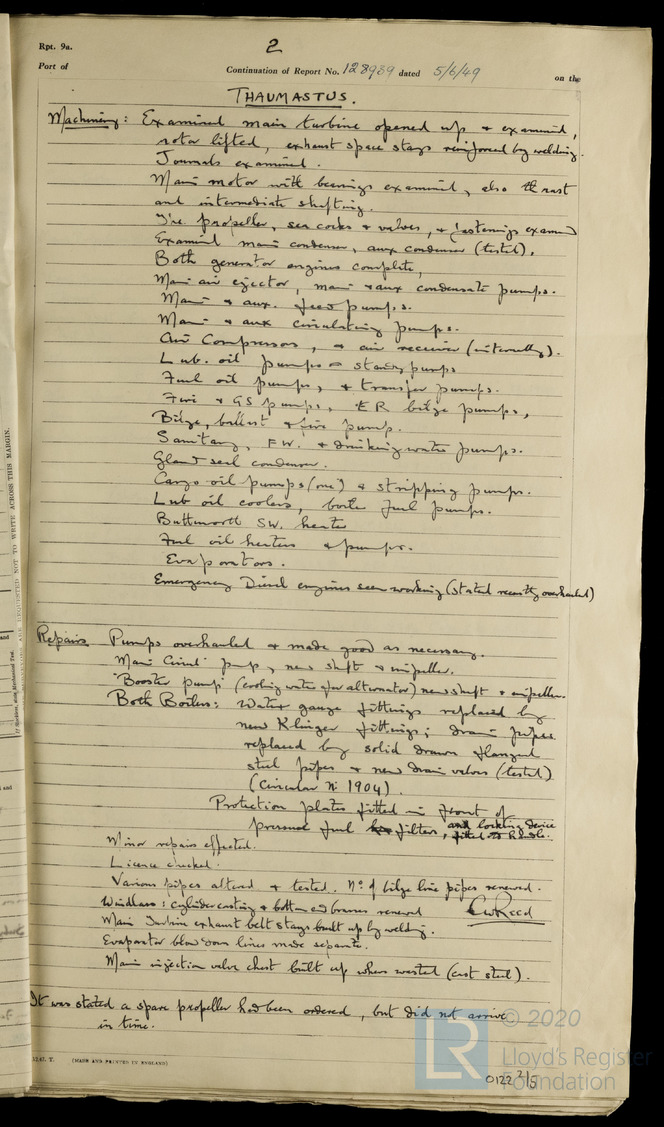 Rpt. 9a.
2
Port of
Continuation of Report No. 128989 dated 5/6/49 on the
THAUMASTUS.
Machinery: Examined main turbine opened up & examined,
rotor lifted, exhaust space stays reinforced by welding.
Journals examined.
Main motor with bearings examined, also thrust
and intermediate shafting.
propeller, sea cocks & valves, & fastenings examined
Examined main condenser, aux condenser (tested).
Both generator engines complete,
Main air ejector, main & aux condensate pumps.
Main & aux. feed pumps.
Main & aux circulating pumps.
Air Compressors, & air receiver (internally).
Lub. oil pumps & standby pumps
Fuel oil pumps, & transfer pumps.
Fire & GS pumps, ER bilge pumps,
Bilge, ballast & fire pump.
Sanitary, F.W. & drinking water pumps.
Gland seal condenser.
Cargo oil pumps (one) & stripping pumps.
Lub oil coolers, boiler fuel pumps.
Butterworth S.W. heater
Fuel oil heaters & pumps.
Evaporators.
Emergency Diesel engines seen working (stated recently overhauled)
Repairs Pumps overhauled & made good as necessary.
Main Circ pump, new shaft & impeller.
"Booster pump" (cooling water for alternator) new shaft & impeller.
Both Boilers: Water gauge fittings replaced by
new Klinger fittings; drain pipes
replaced by solid drawn flanged
steel pipes & new drain valves (tested)
(Circular No 1904).
Protection plates fitted in front of
pressure fuel filters, and locking device
fitted to
Minor repairs effected.
Licence checked.
Various pipes altered & tested. No. of bilge line pipes renewed.
Windlass: cylinder casting & bottom end brasses renewed
Main Turbine exhaust belt stays built up by welding.
Evaporator blow down lines made separate.
Main injection valve chest built up where wasted (cast steel).
It was stated a spare propeller had been ordered, but did not arrive
in time.
(MADE AND PRINTED IN ENGLAND)
© 2020
LR
Lloyd's Register
Foundation
0122 2/5